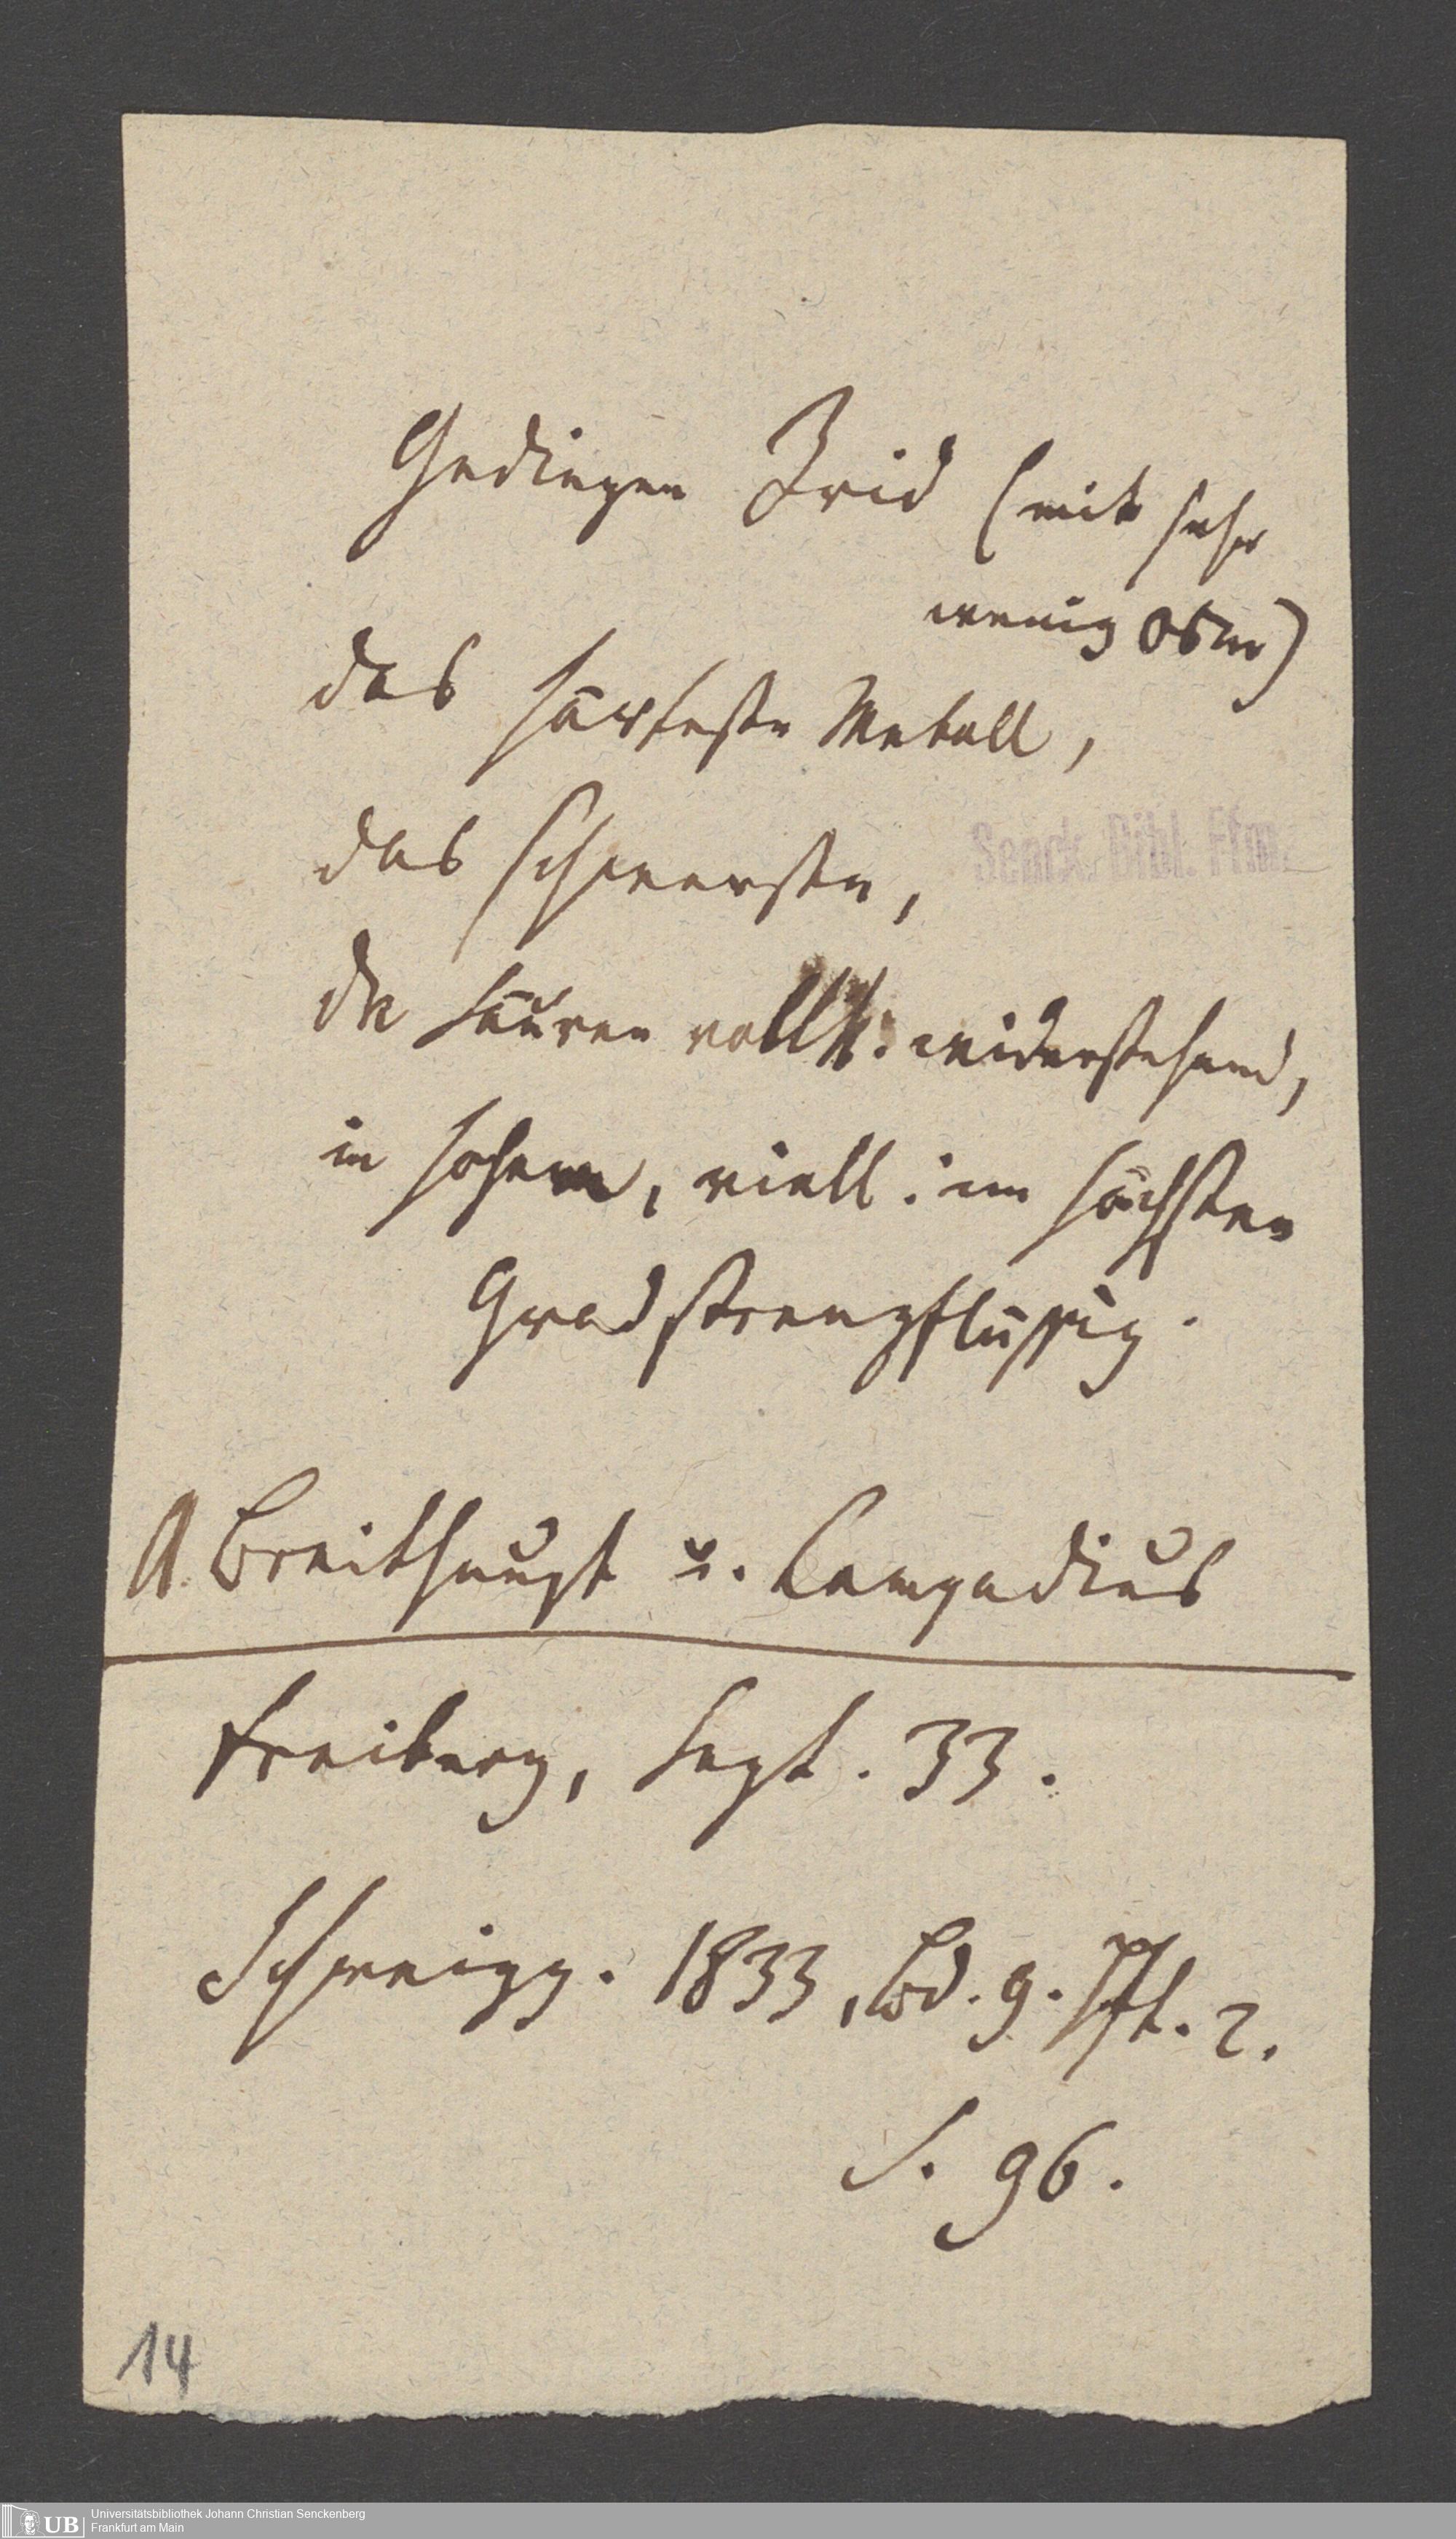 Gediegen Irid (mit sehr
wenig Osm)
das härteste Metall,
das schwerste,
den Säuren vollk: widerstehend,
in hohem, viell: im höchsten
Grad strengflüssig.
A. Breithaupt u. Lampadius
Freiberg, Sept. 33.
Schweigg. 1833, Bd. 9. Hft. 2.
S. 96.
Senck. Bibl. Ffm.
14
UB
Universitätsbibliothek Johann Christian Senckenberg
Frankfurt am Main